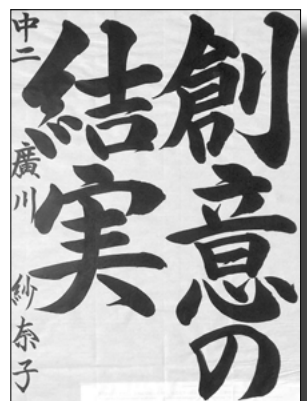 創意の
結実
中二 廣川 紗奈子